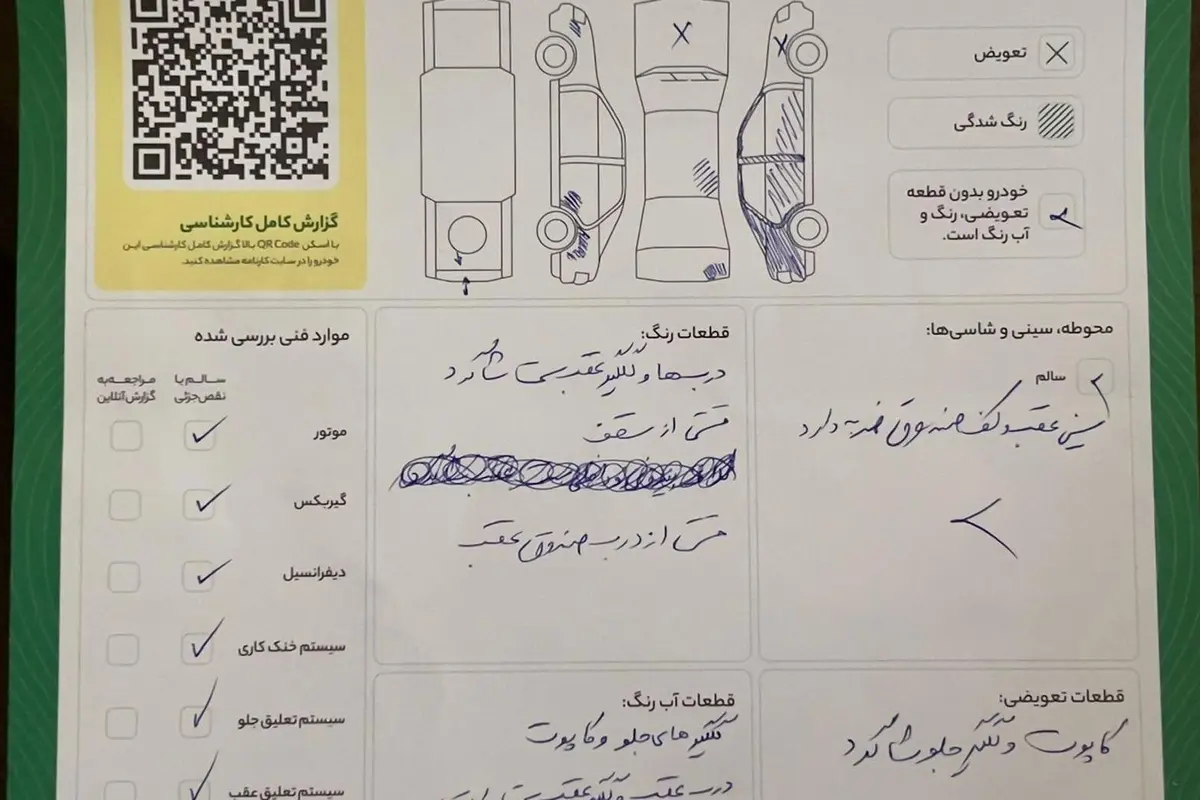 تعویض
رنگ شدگی
خودرو بدون قطعه
تعویضی، رنگ و
آب رنگ است.
گزارش کامل کارشناسی
با اسکن QR Code بالا گزارش کامل کارشناسی این
خودرو را در سایت کارنامه مشاهده کنید.
محوطه، سینی و شاسی‌ها:
سالم
سینی عقب و کف صندوق ضربه دارد
قطعات رنگ:
دربها و گلگیر عقب سمت شاگرد
قسمتی از سقف
قسمتی از درب صندوق عقب
موارد فنی بررسی شده
سالم یا
نقص جزئی
مراجعه به
گزارش آنلاین
موتور
گیربکس
دیفرانسیل
سیستم خنک کاری
سیستم تعلیق جلو
سیستم تعلیق عقب
قطعات تعویضی:
کاپوت و گلگیر جلو شاگرد
قطعات آب رنگ:
گلگیرهای جلو و کاپوت
درب عقب و گلگیر عقب